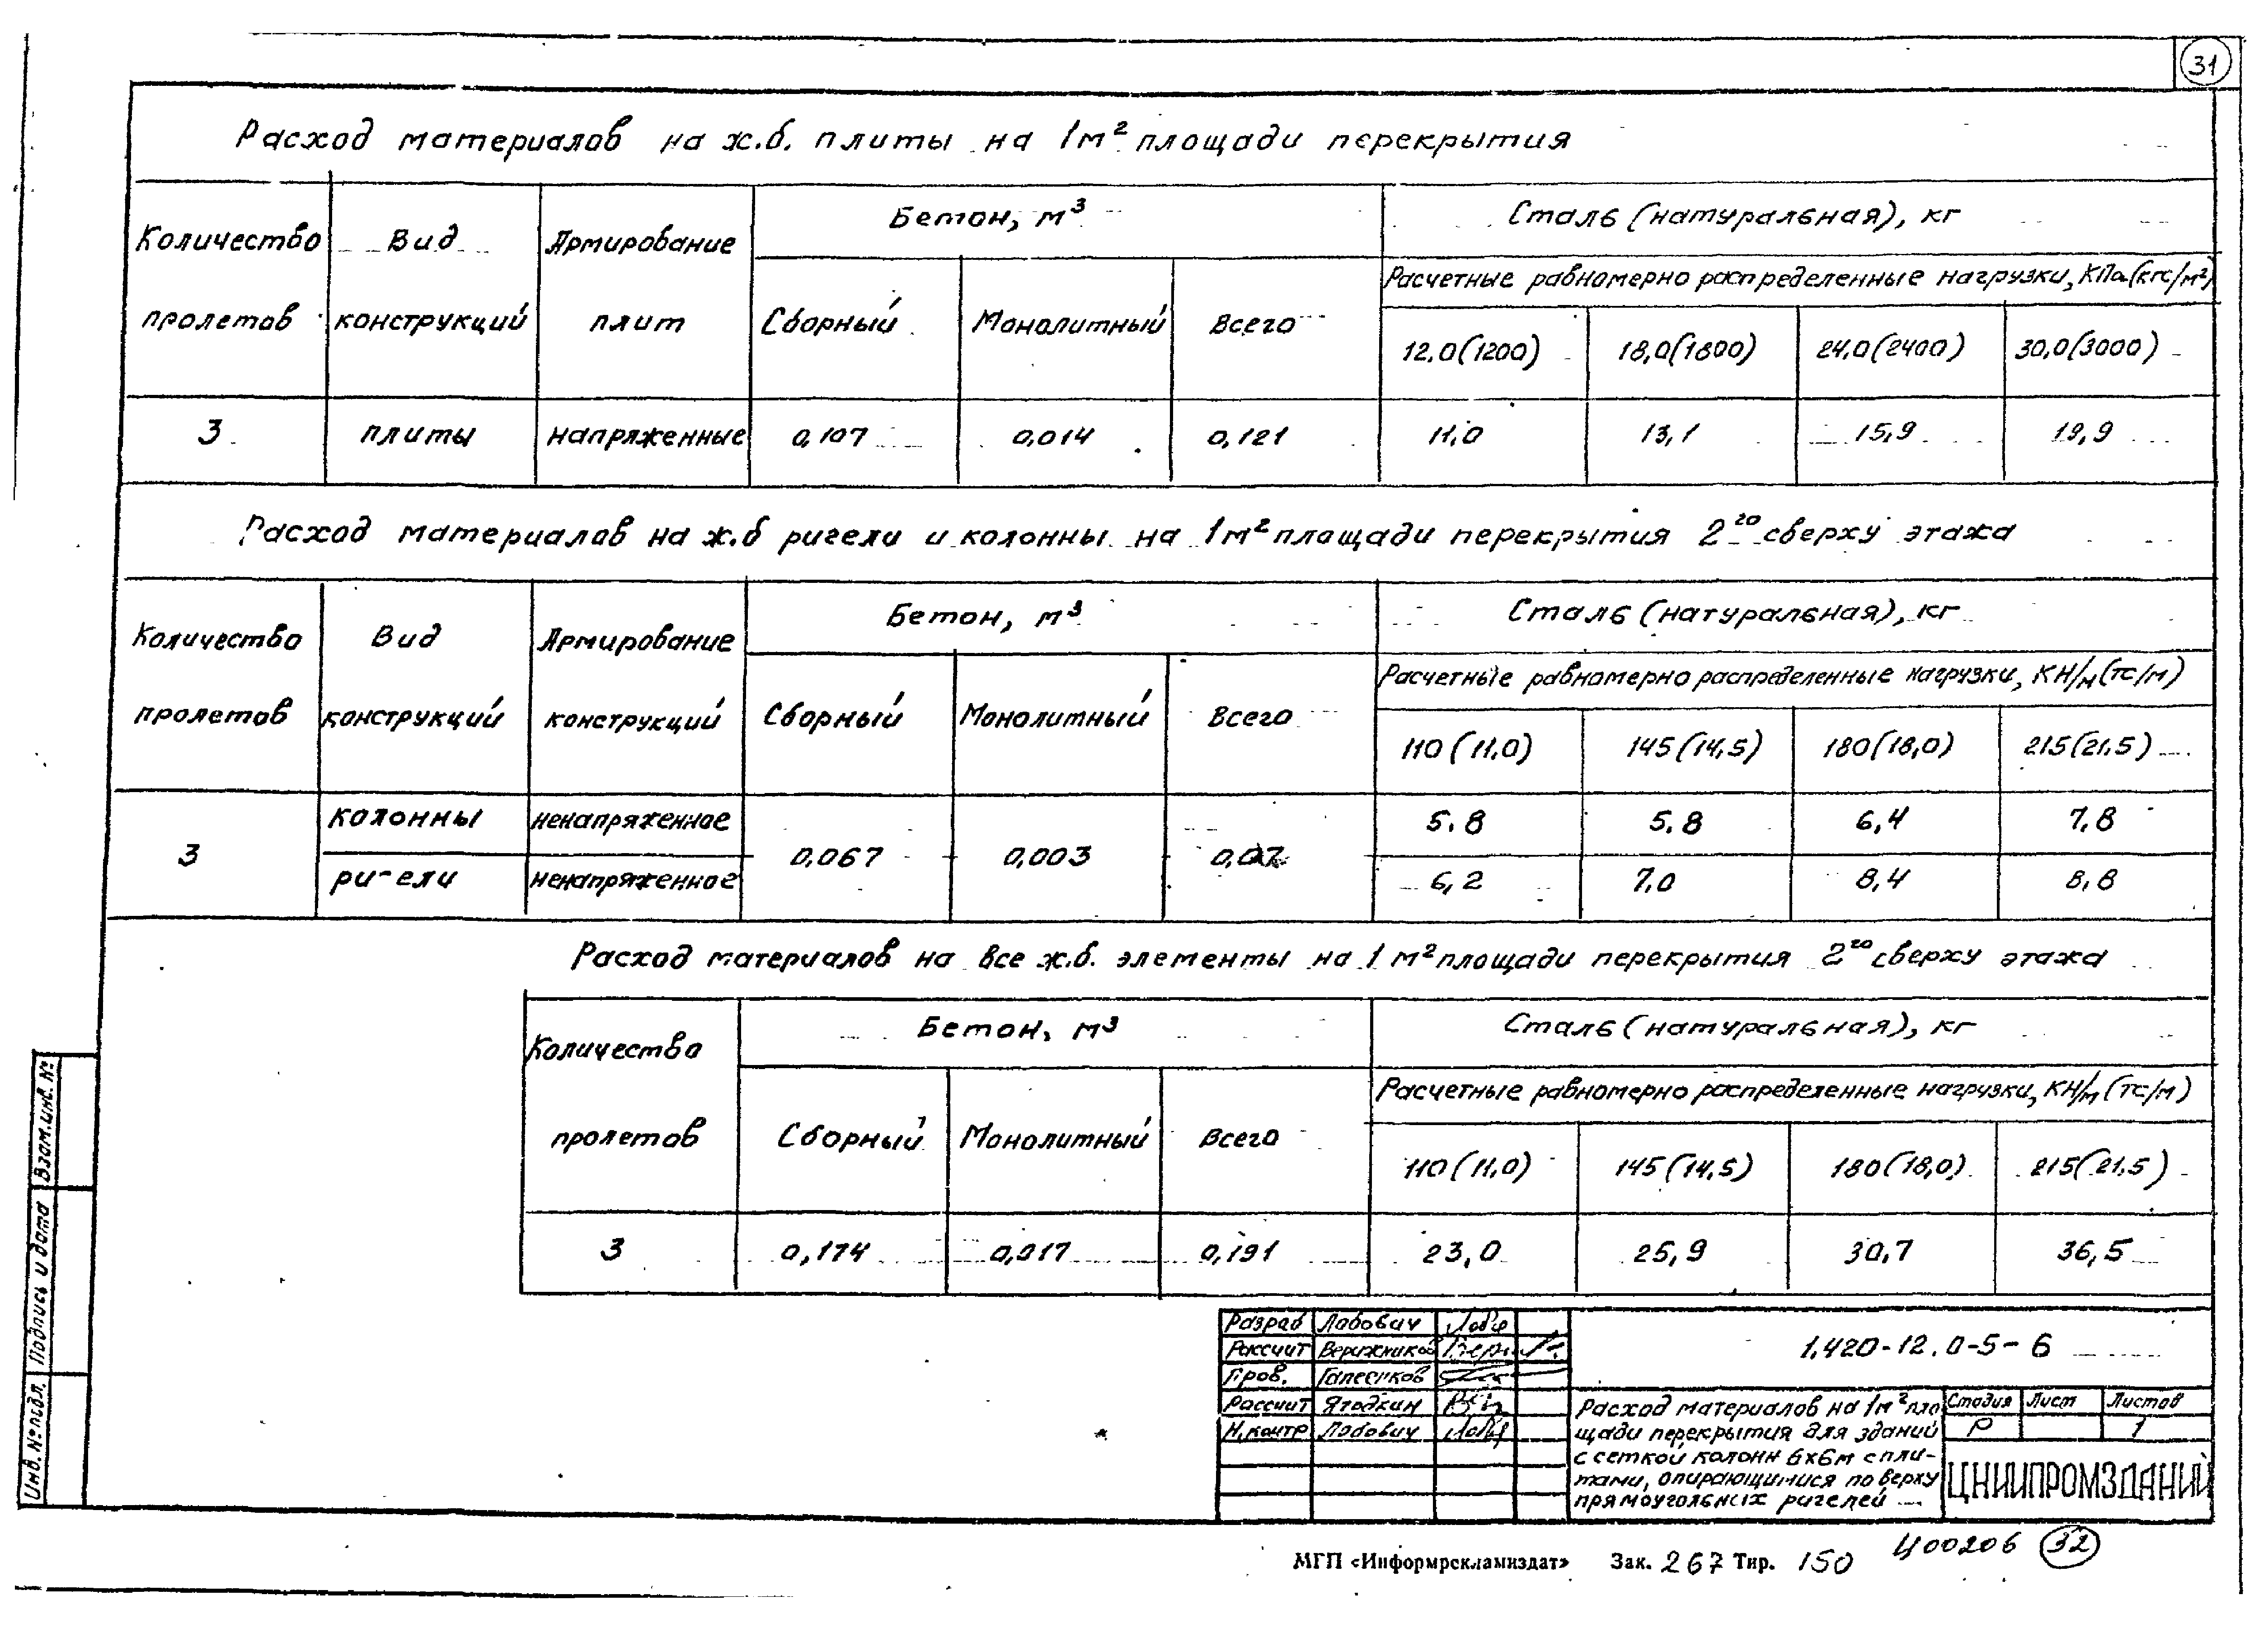 31
Расход материалов на ж.б. плиты на 1м² площади перекрытия
Количество пролетов Вид конструкций Армирование плит Бетон, м³ Сталь (натуральная), кг
Расчетные равномерно распределенные нагрузки, КПа (кгс/м²)
Сборный Монолитный Всего 12,0(1200) 18,0(1800) 24,0(2400) 30,0(3000)
3 плиты напряженные 0,107 0,014 0,121 11,0 13,1 15,9 19,9
Расход материалов на ж.б ригели и колонны на 1м² площади перекрытия 2го сверху этажа
Количество пролетов Вид конструкций Армирование конструкций Бетон, м³ Сталь (натуральная), кг
Расчетные равномерно распределенные нагрузки, КН/м (тс/м)
Сборный Монолитный Всего 110 (11,0) 145 (14,5) 180 (18,0) 215 (21,5)
3 колонны ненапряженное 0,067 0,003 0,07 5,8 5,8 6,4 7,8
ригели ненапряженное 6,2 7,0 8,4 8,8
Расход материалов на все ж.б. элементы на 1 м² площади перекрытия 2го сверху этажа
Количество пролетов Бетон, м³ Сталь (натуральная), кг
Расчетные равномерно распределенные нагрузки, КН/м (тс/м)
Сборный Монолитный Всего 110 (11,0) 145 (14,5) 180 (18,0) 215 (21,5)
3 0,174 0,017 0,191 23,0 25,9 30,7 36,5
Инв. № подл. Подпись и дата Взам.инв. №
Разраб Лабович
Рассчит Верижников
Пров.
Рассчит Ягодкин
Н.контр Лабович
1.420-12.0-5-6
Расход материалов на 1м² пло
щади перекрытия для зданий
с сеткой колонн 6х6м с пли-
тами, опирающимися по верху
прямоугольных ригелей
Стадия Лист Листов
Р 1
ЦНИИПРОМЗДАНИЙ
МГП «Информрекламиздат» Зак. 267 Тир. 150 Ц00206 32